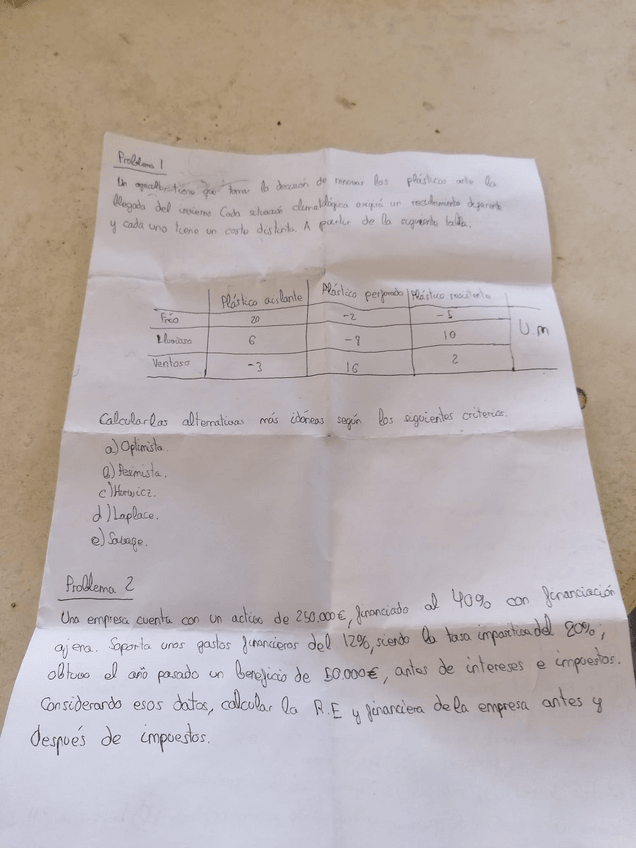 Problema 1
Un agricultor tiene que tomar la decisión de renovar los plásticos ante la
llegada del invierno. Cada situación climatológica exigirá un recubrimiento diferente
y cada uno tiene un coste distinto. A partir de la siguiente tabla.
Plástico aislante Plástico perforado Plástico resistente
Frío 20 -2 -5 U m
Lluvioso 6 10
Ventoso -3 16 2
Calcular las alternativas más idóneas según los siguientes criterios.
a) Optimista.
b) Pesimista.
c) Hurwicz.
d) Laplace.
e) Savage.
Problema 2
Una empresa cuenta con un activo de 250.000€, financiado al 40% con financiación
ajena. Soporta unos gastos financieros del 12%, siendo la tasa impositiva del 20%;
obtuvo el año pasado un beneficio de 50.000€, antes de intereses e impuestos.
Considerando esos datos, calcular la R.E y financiera de la empresa antes y
después de impuestos.